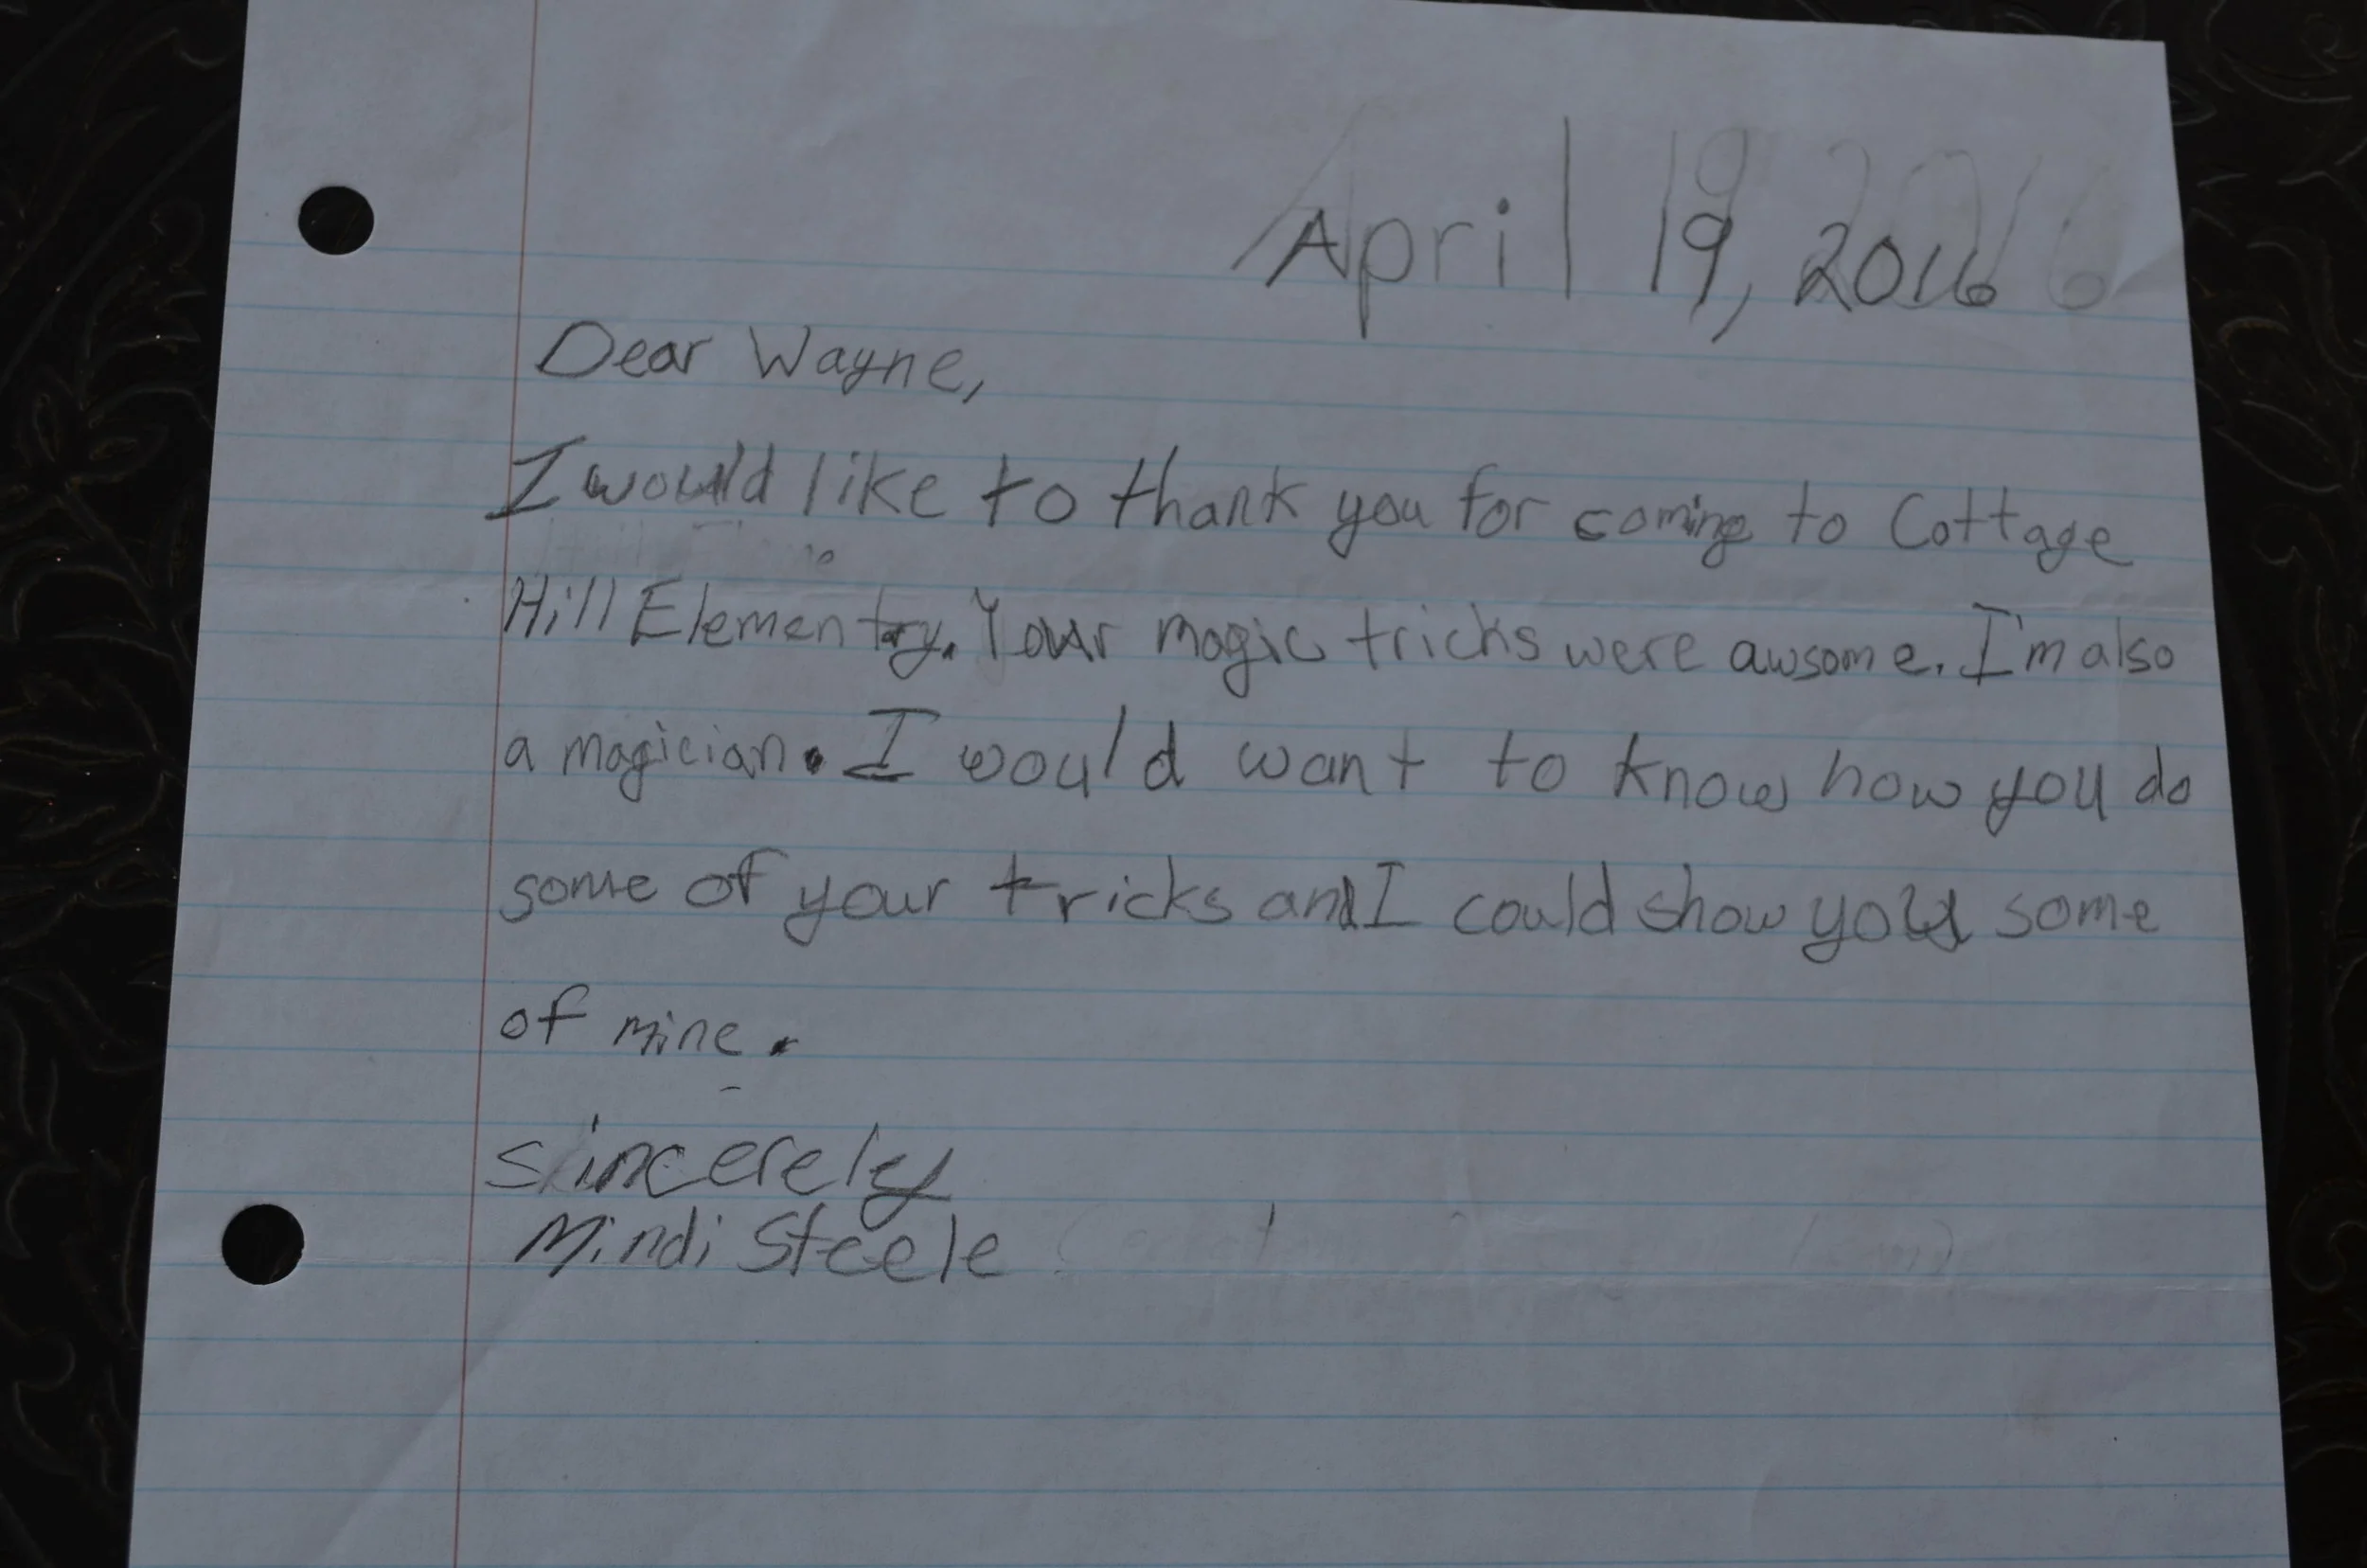 April 19, 2016
Dear Wayne,
I would like to thank you for coming to Cottage
Hill Elementry. Your magic tricks were awsome. I'm also
a magician. I would want to know how you do
some of your tricks and I could show you some
of mine.
sincerely
Mindi Steele